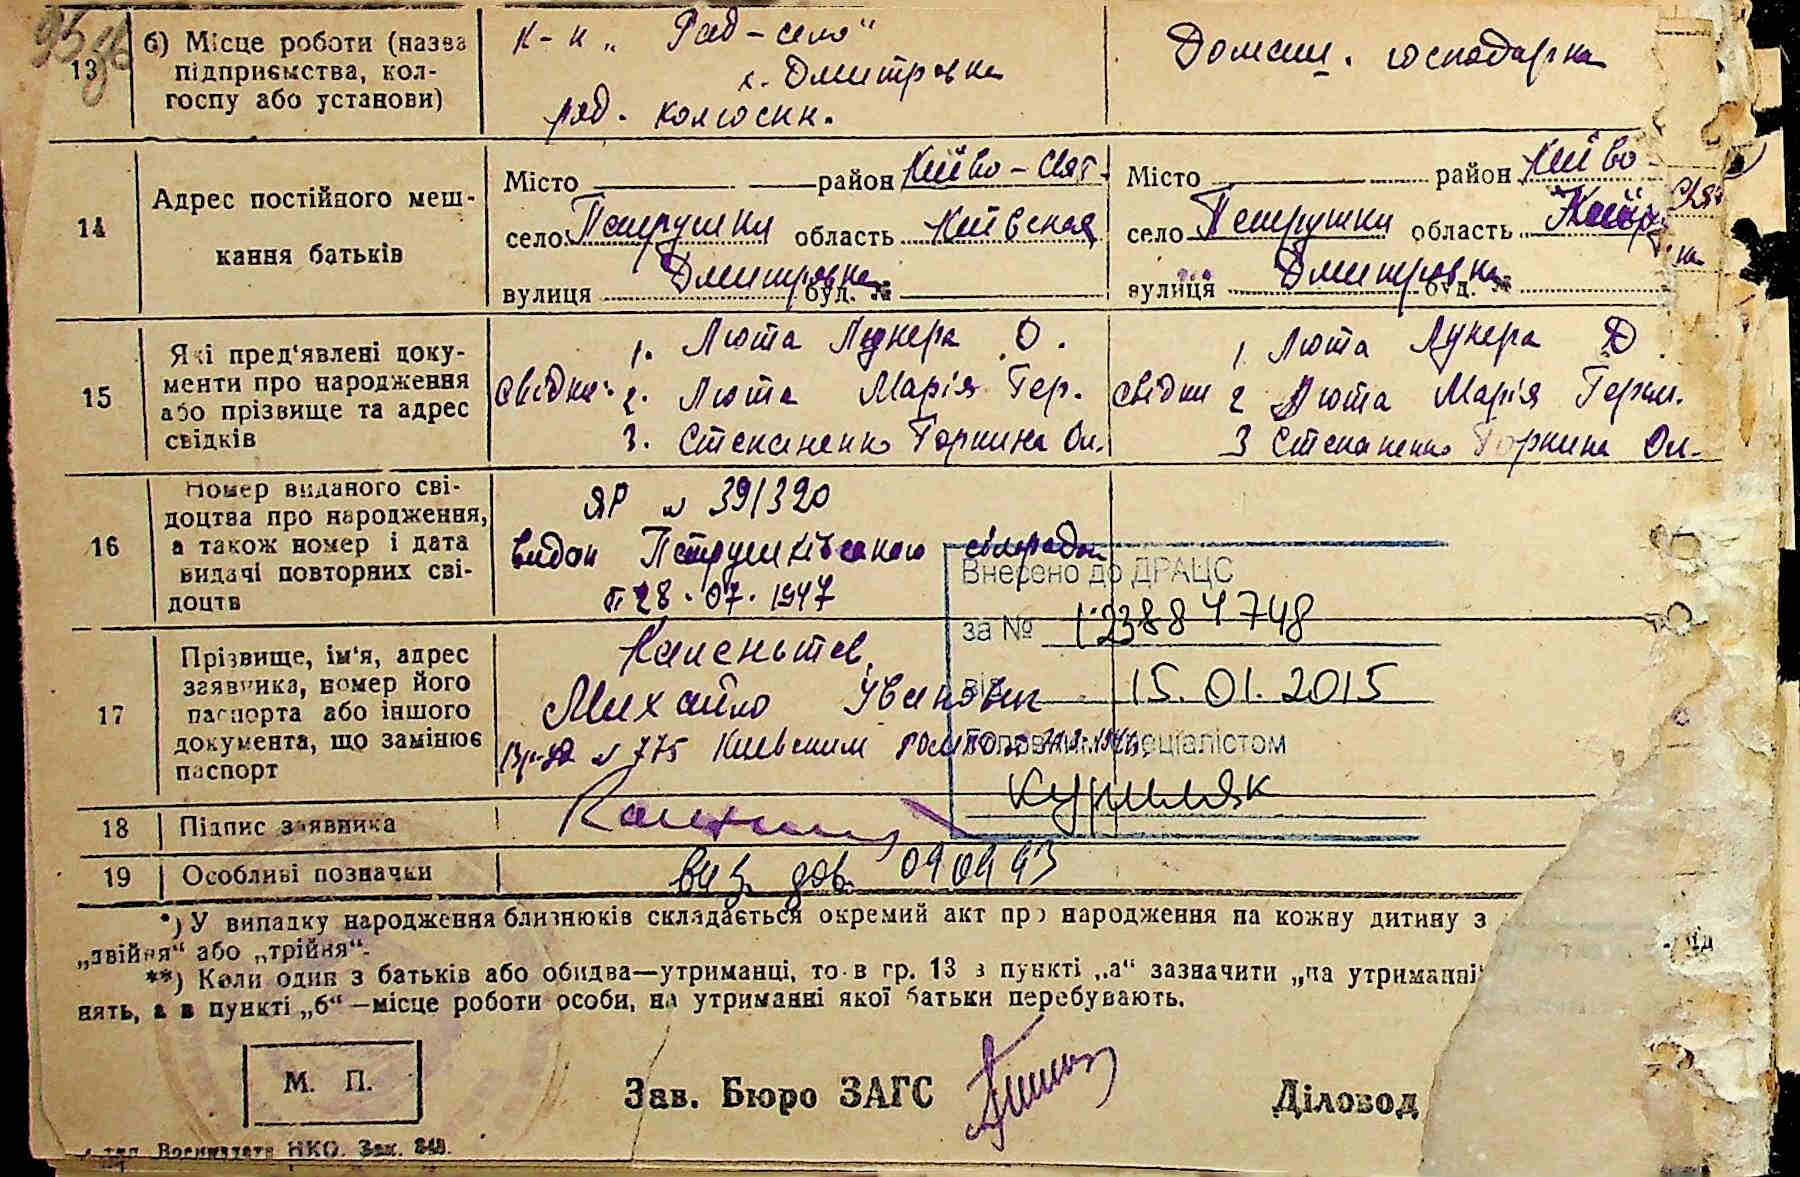 13
б) Місце роботи (назва
підприємства, кол-
госпу або установи)
к-п „Рад-село"
х. Дмитровка
ряд. колгоспн.
Домаш. господарка
14
Адрес постійного меш-
кання батьків
Місто район Київо-Свят.
село Петрушки область Київская
вулиця Дмитровка буд. №
Місто район Київо-Свят.
село Петрушки область
вулиця Дмитровка буд. №
15
Які пред'явлені доку-
менти про народження
або прізвище та адрес
свідків
1. Люта Лукера О.
свідки: 2. Люта Марія Гер.
3. Степаненко Горпина Ол.
1. Люта Лукера
свідки 2 Люта Марія Герас.
3 Степаненко Горпина Ол.
16
Номер виданого сві-
доцтва про народження,
а також номер і дата
видачі повторних сві-
доцтв
ЯР № 391320
видан Петрушківською сільрадою
28.07.1947
Внесено до ДРАЦС
за № 12388 4748
від 15.01.2015
Головним спеціалістом
17
Прізвище, ім'я, адрес
заявника, номер його
паспорта або іншого
документа, що замінює
паспорт
Михайло Іванович
№ 775 Киевским
18
Підпис заявника
19
Особливі позначки
вид. дов. 09 04 93
*) У випадку народження близнюків складається окремий акт про народження на кожну дитину з
„двійня" або „трійня".
**) Коли один з батьків або обидва—утриманці, то в гр. 13 в пункті „а" зазначити „на утриманні"
нять, а в пункті „б"—місце роботи особи, на утриманні якої батьки перебувають.
М. П.
Зав. Бюро ЗАГС
Діловод
НКО. Зак. 848.